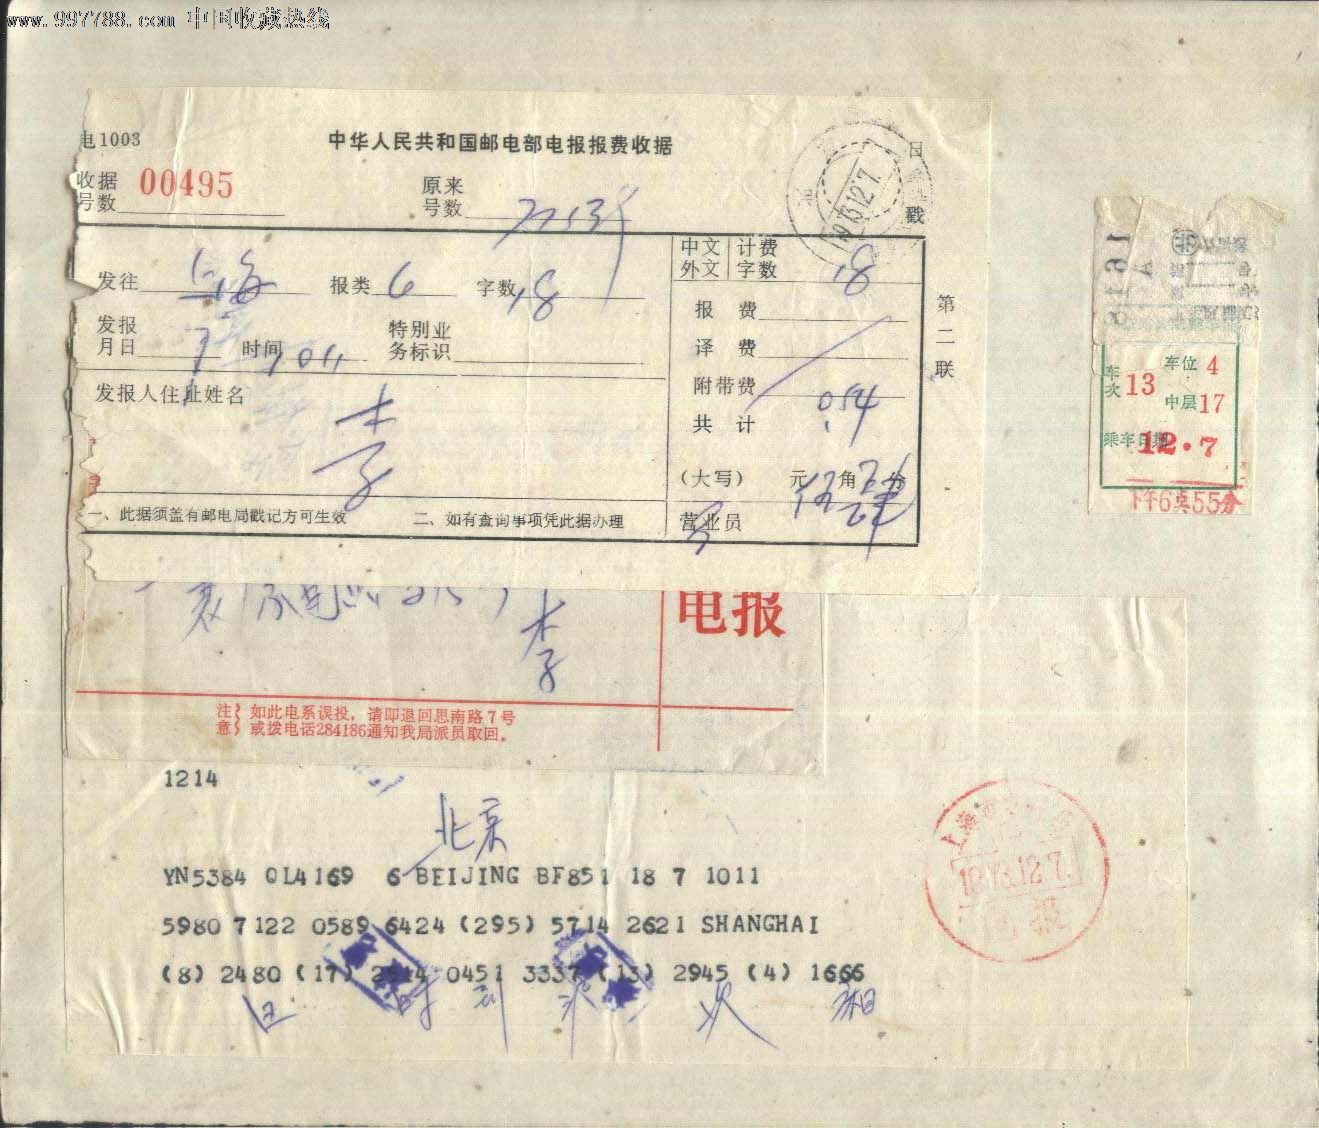 www.997788.com 中国收藏热线
电1003
中华人民共和国邮电部电报报费收据
收据号数 00495
原来号数
日戳
1973.12.7.
发往 上海 报类 6 字数 18
中文 外文 计费字数 18
发报月日 7 时间
特别业务标识
报费
译费
附带费
共计 0.54
发报人住址姓名
李
(大写) 元 伍角 肆分
一、此据须盖有邮电局戳记方可生效 二、如有查询事项凭此据办理
营业员
第二联
车次 13 车位 4
中层 17
乘车日期 12.7
下午6点55分
李
电报
注意 如此电系误投,请即退回思南路7号
或拨电话284186通知我局派员取回。
1214
北京
YN5384 QL4169 6 BEIJING BF851 18 7 1011
5980 7122 0589 6424 (295) 5714 2621 SHANGHAI
(8) 2480 (17) 2514 0451 3337 (13) 2945 (4) 1666
时到 次 相
1973.12.7.